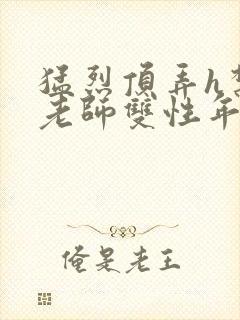 猛烈頂弄h
老師雙性年
俺是老王